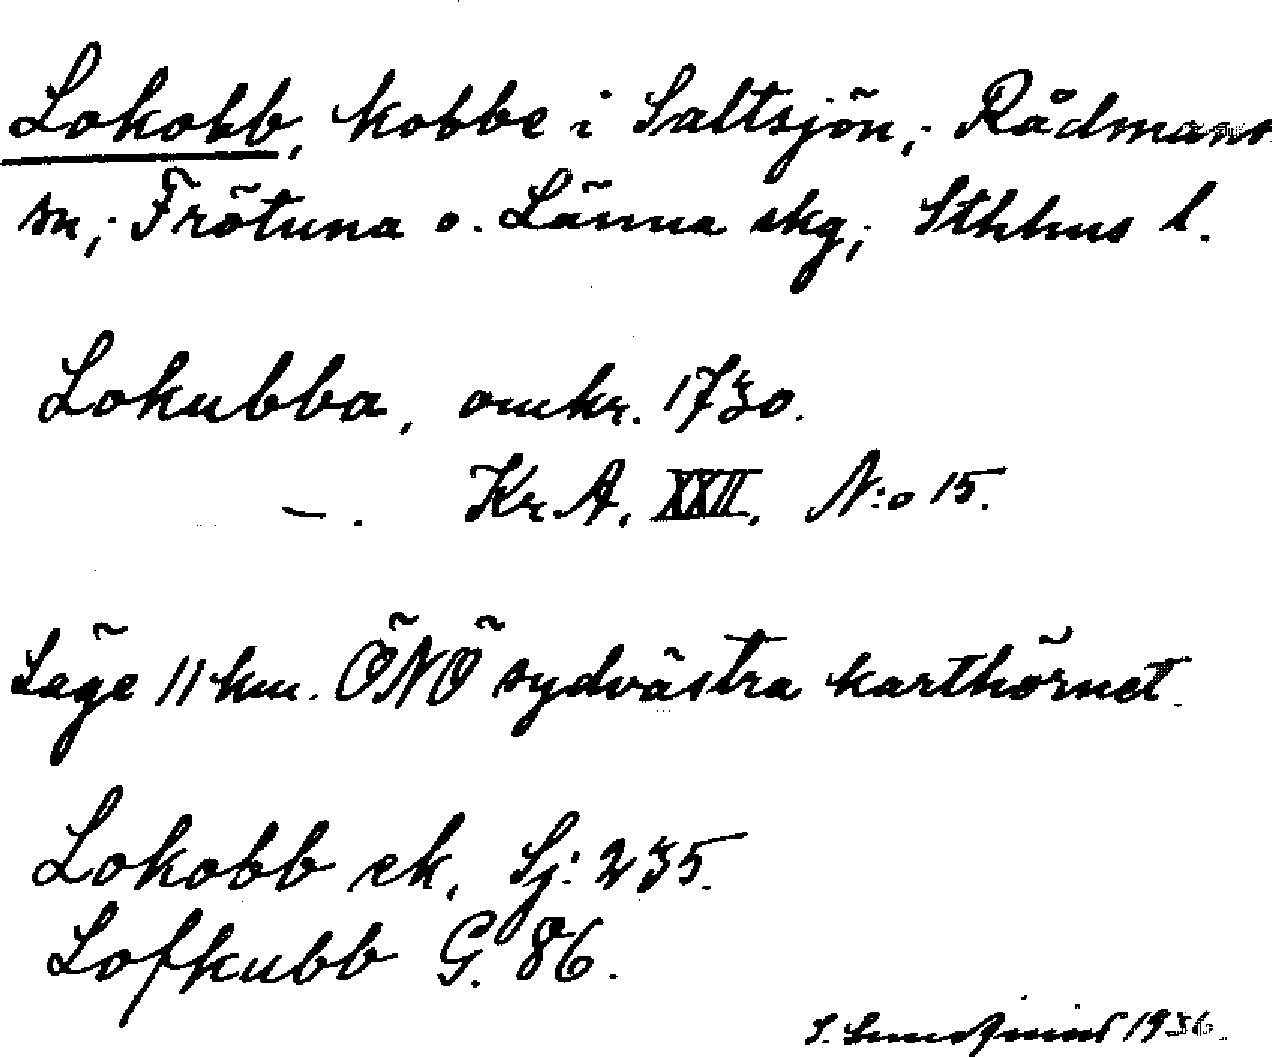 Lokobb, kobbe i Saltsjön; Rådmansö
sn; Frötuna o. Länna skg; Sthlms l.
Lokubba, omkr. 1730.
—. Kr. A. XXII. N:o 15.
Läge 11 km. ÖNÖ sydvästra karthörnet.
Lokobb ek. Sj: 235.
Lofkubb G. 86.
1936.